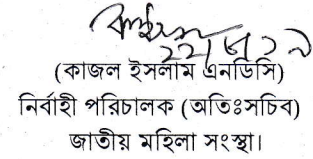 ২২/৫/১৯
(কাজল ইসলাম এনডিসি)
নির্বাহী পরিচালক (অতিঃসচিব)
জাতীয় মহিলা সংস্থা।